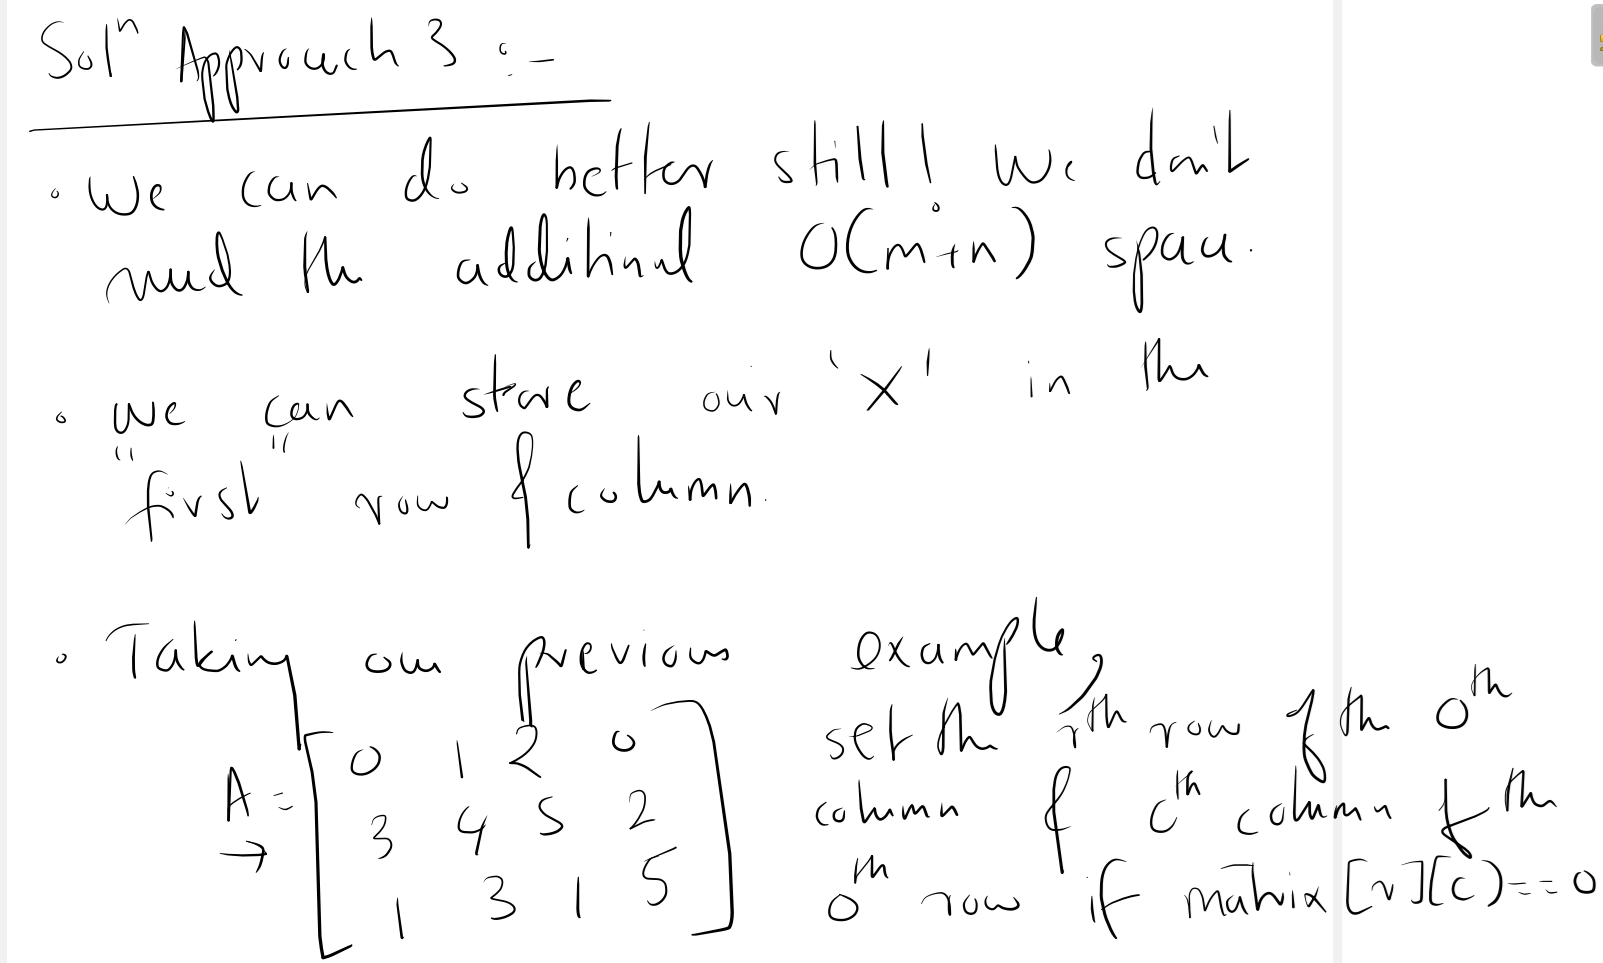 Solⁿ Approach 3 :-
• We can do better still! We don't
need the additional O(m+n) space.
• we can store our 'X' in the
"first" row & column.
• Taking our previous example,
set the rth row of the 0th
A = [ 0 1 2 0
column & cth column of the
3 4 5 2
0th row if matrix[r][c]==0
1 3 1 5 ]